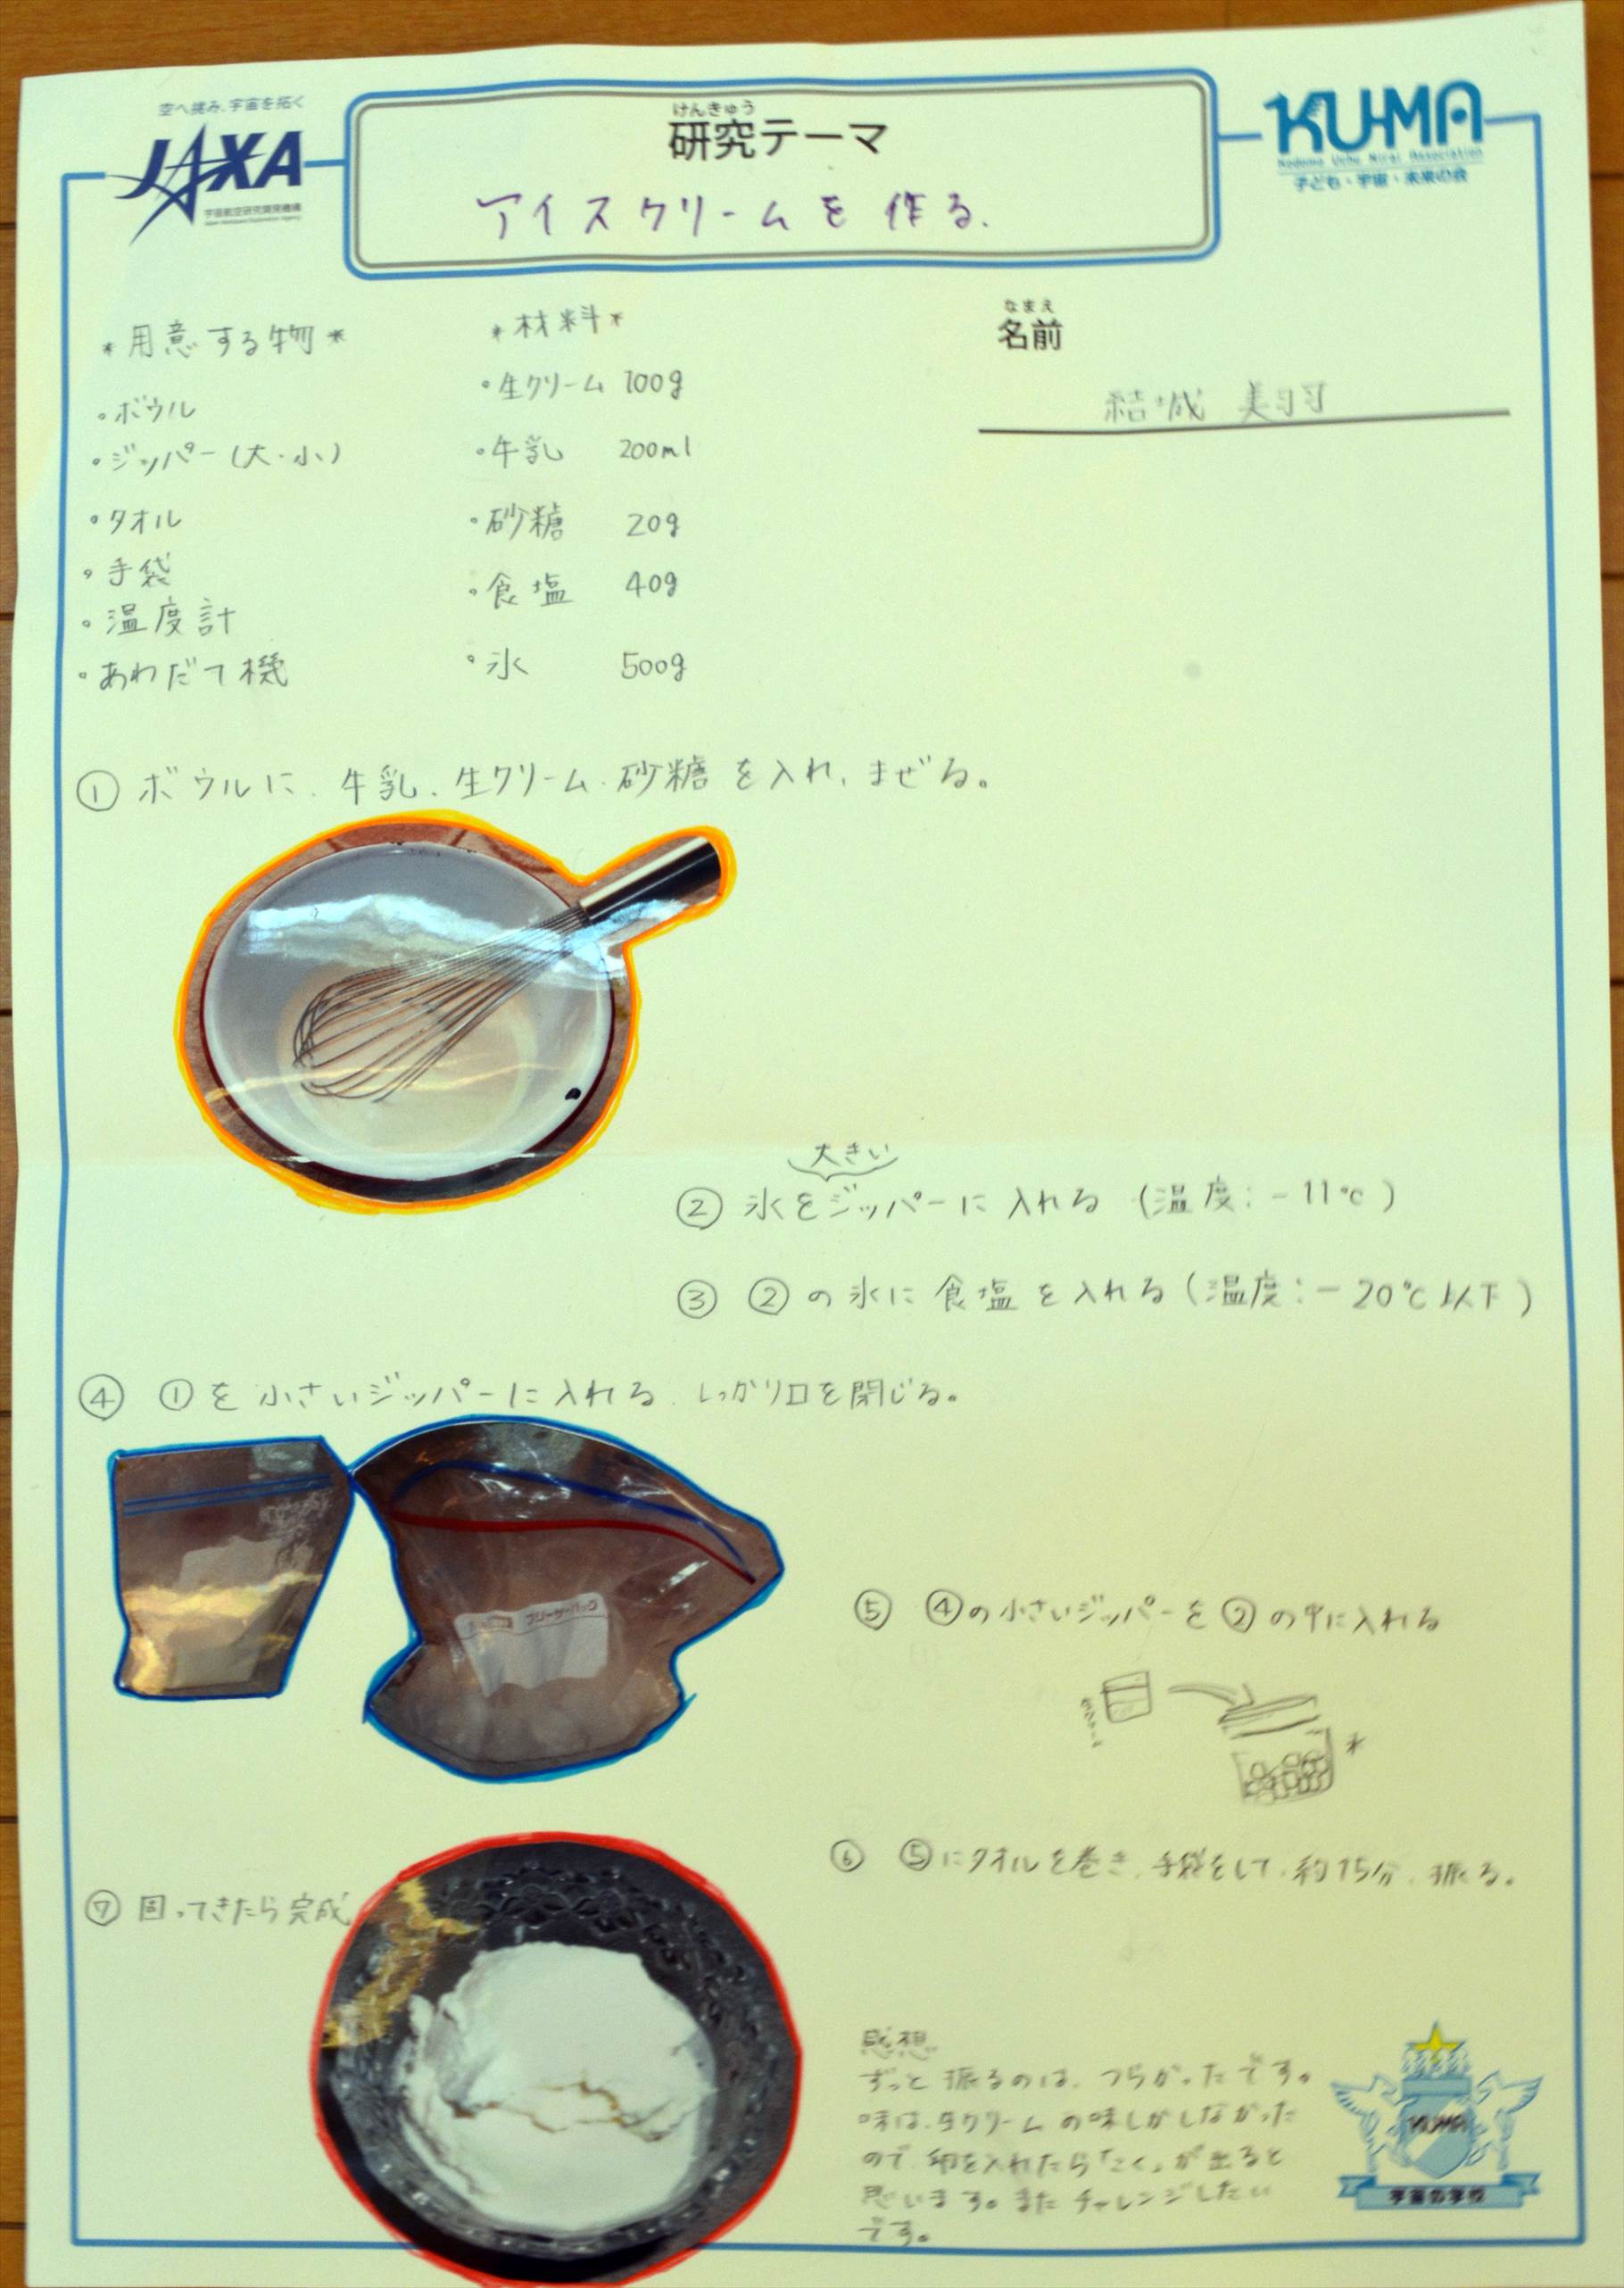 空へ挑み、宇宙を拓く
JAXA
宇宙航空研究開発機構
けんきゅう
研究テーマ
アイスクリームを作る.
KU-MA
Kodomo Uchu Mirai Association
子ども・宇宙・未来の会
なまえ
名前
結城 美羽
*用意する物*
・ボウル
・ジッパー(大・小)
・タオル
・手袋
・温度計
・あわだて機
*材料*
・生クリーム 100g
・牛乳 200ml
・砂糖 20g
・食塩 40g
・氷 500g
① ボウルに、牛乳、生クリーム、砂糖を入れ、まぜる。
大きい
② 氷をジッパーに入れる (温度:-11℃)
③ ②の氷に食塩を入れる(温度:-20℃以下)
④ ①を小さいジッパーに入れる、しっかり口を閉じる。
⑤ ④の小さいジッパーを②の中に入れる
⑥ ⑤にタオルを巻き、手袋をして、約15分、振る。
⑦ 固ってきたら完成
感想
ずっと振るのは、つらかったです。
味は、生クリームの味しかしなかった
ので、卵を入れたら「こく」が出ると
思います。またチャレンジしたい
です。
KUMA
宇宙の学校